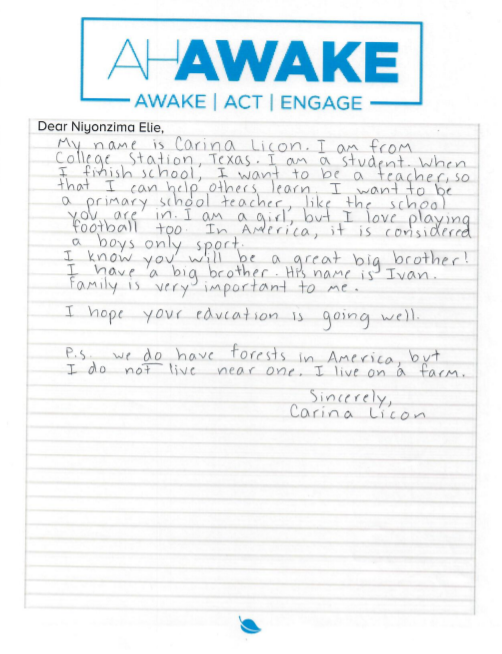 AHAWAKE
AWAKE | ACT | ENGAGE
Dear Niyonzima Elie,
My name is Carina Licon. I am from
College Station, Texas. I am a student. When
I finish school, I want to be a teacher, so
that I can help others learn. I want to be
a primary school teacher, like the school
you are in. I am a girl, but I love playing
football too. In America, it is considered
a boys only sport.
I know you will be a great big brother!
I have a big brother. His name is Ivan.
Family is very important to me.
I hope your education is going well.
P.S. we do have forests in America, but
I do not live near one. I live on a farm.
Sincerely,
Carina Licon